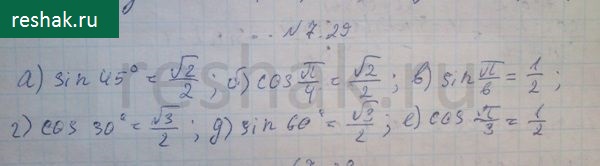 reshak.ru
№ 7.29
а) sin 45° = √2/2 ; б) cos π/4 = √2/2 ; в) sin π/6 = 1/2 ;
г) cos 30° = √3/2 ; д) sin 60° = √3/2 ; е) cos π/3 = 1/2
reshak.ru